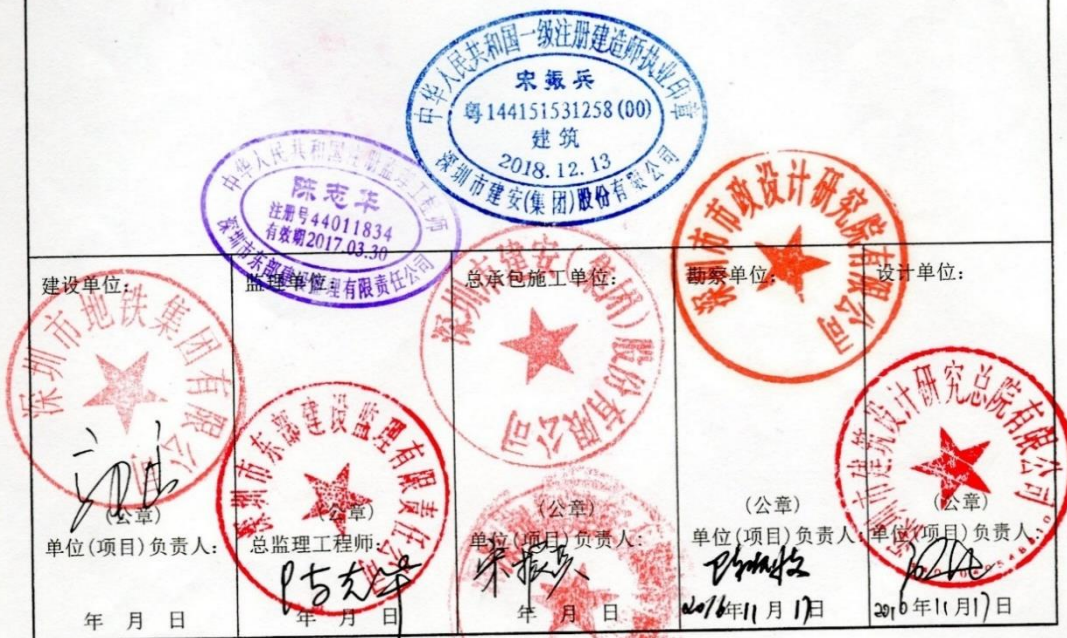 中华人民共和国一级注册建造师执业印章
宋振兵
粤144151531258(00)
建筑
2018.12.13
深圳市建安(集团)股份有限公司
中华人民共和国注册监理工程师
陈志华
注册号44011834
有效期2017.03.30
深圳市东部建设监理有限责任公司
深圳市市政设计研究院有限公司
建设单位：
监理单位：
总承包施工单位：
勘察单位：
设计单位：
深圳市地铁集团有限公司
深圳市东部建设监理有限责任公司
深圳市建安（集团）股份有限公司
深圳市建筑设计研究总院有限公司
(公章)
(公章)
(公章)
(公章)
(公章)
单位(项目)负责人：
总监理工程师：
单位(项目)负责人：
单位(项目)负责人：
单位(项目)负责人：
陈志华
宋振兵
年 月 日
年 月 日
年 月 日
2016年11月17日
2016年11月17日